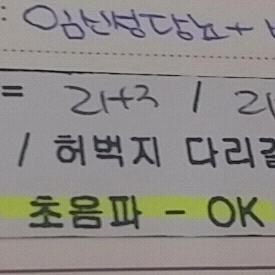 : 임신성당뇨+
= 21+3 / 21
/ 허벅지 다리길
초음파 - OK